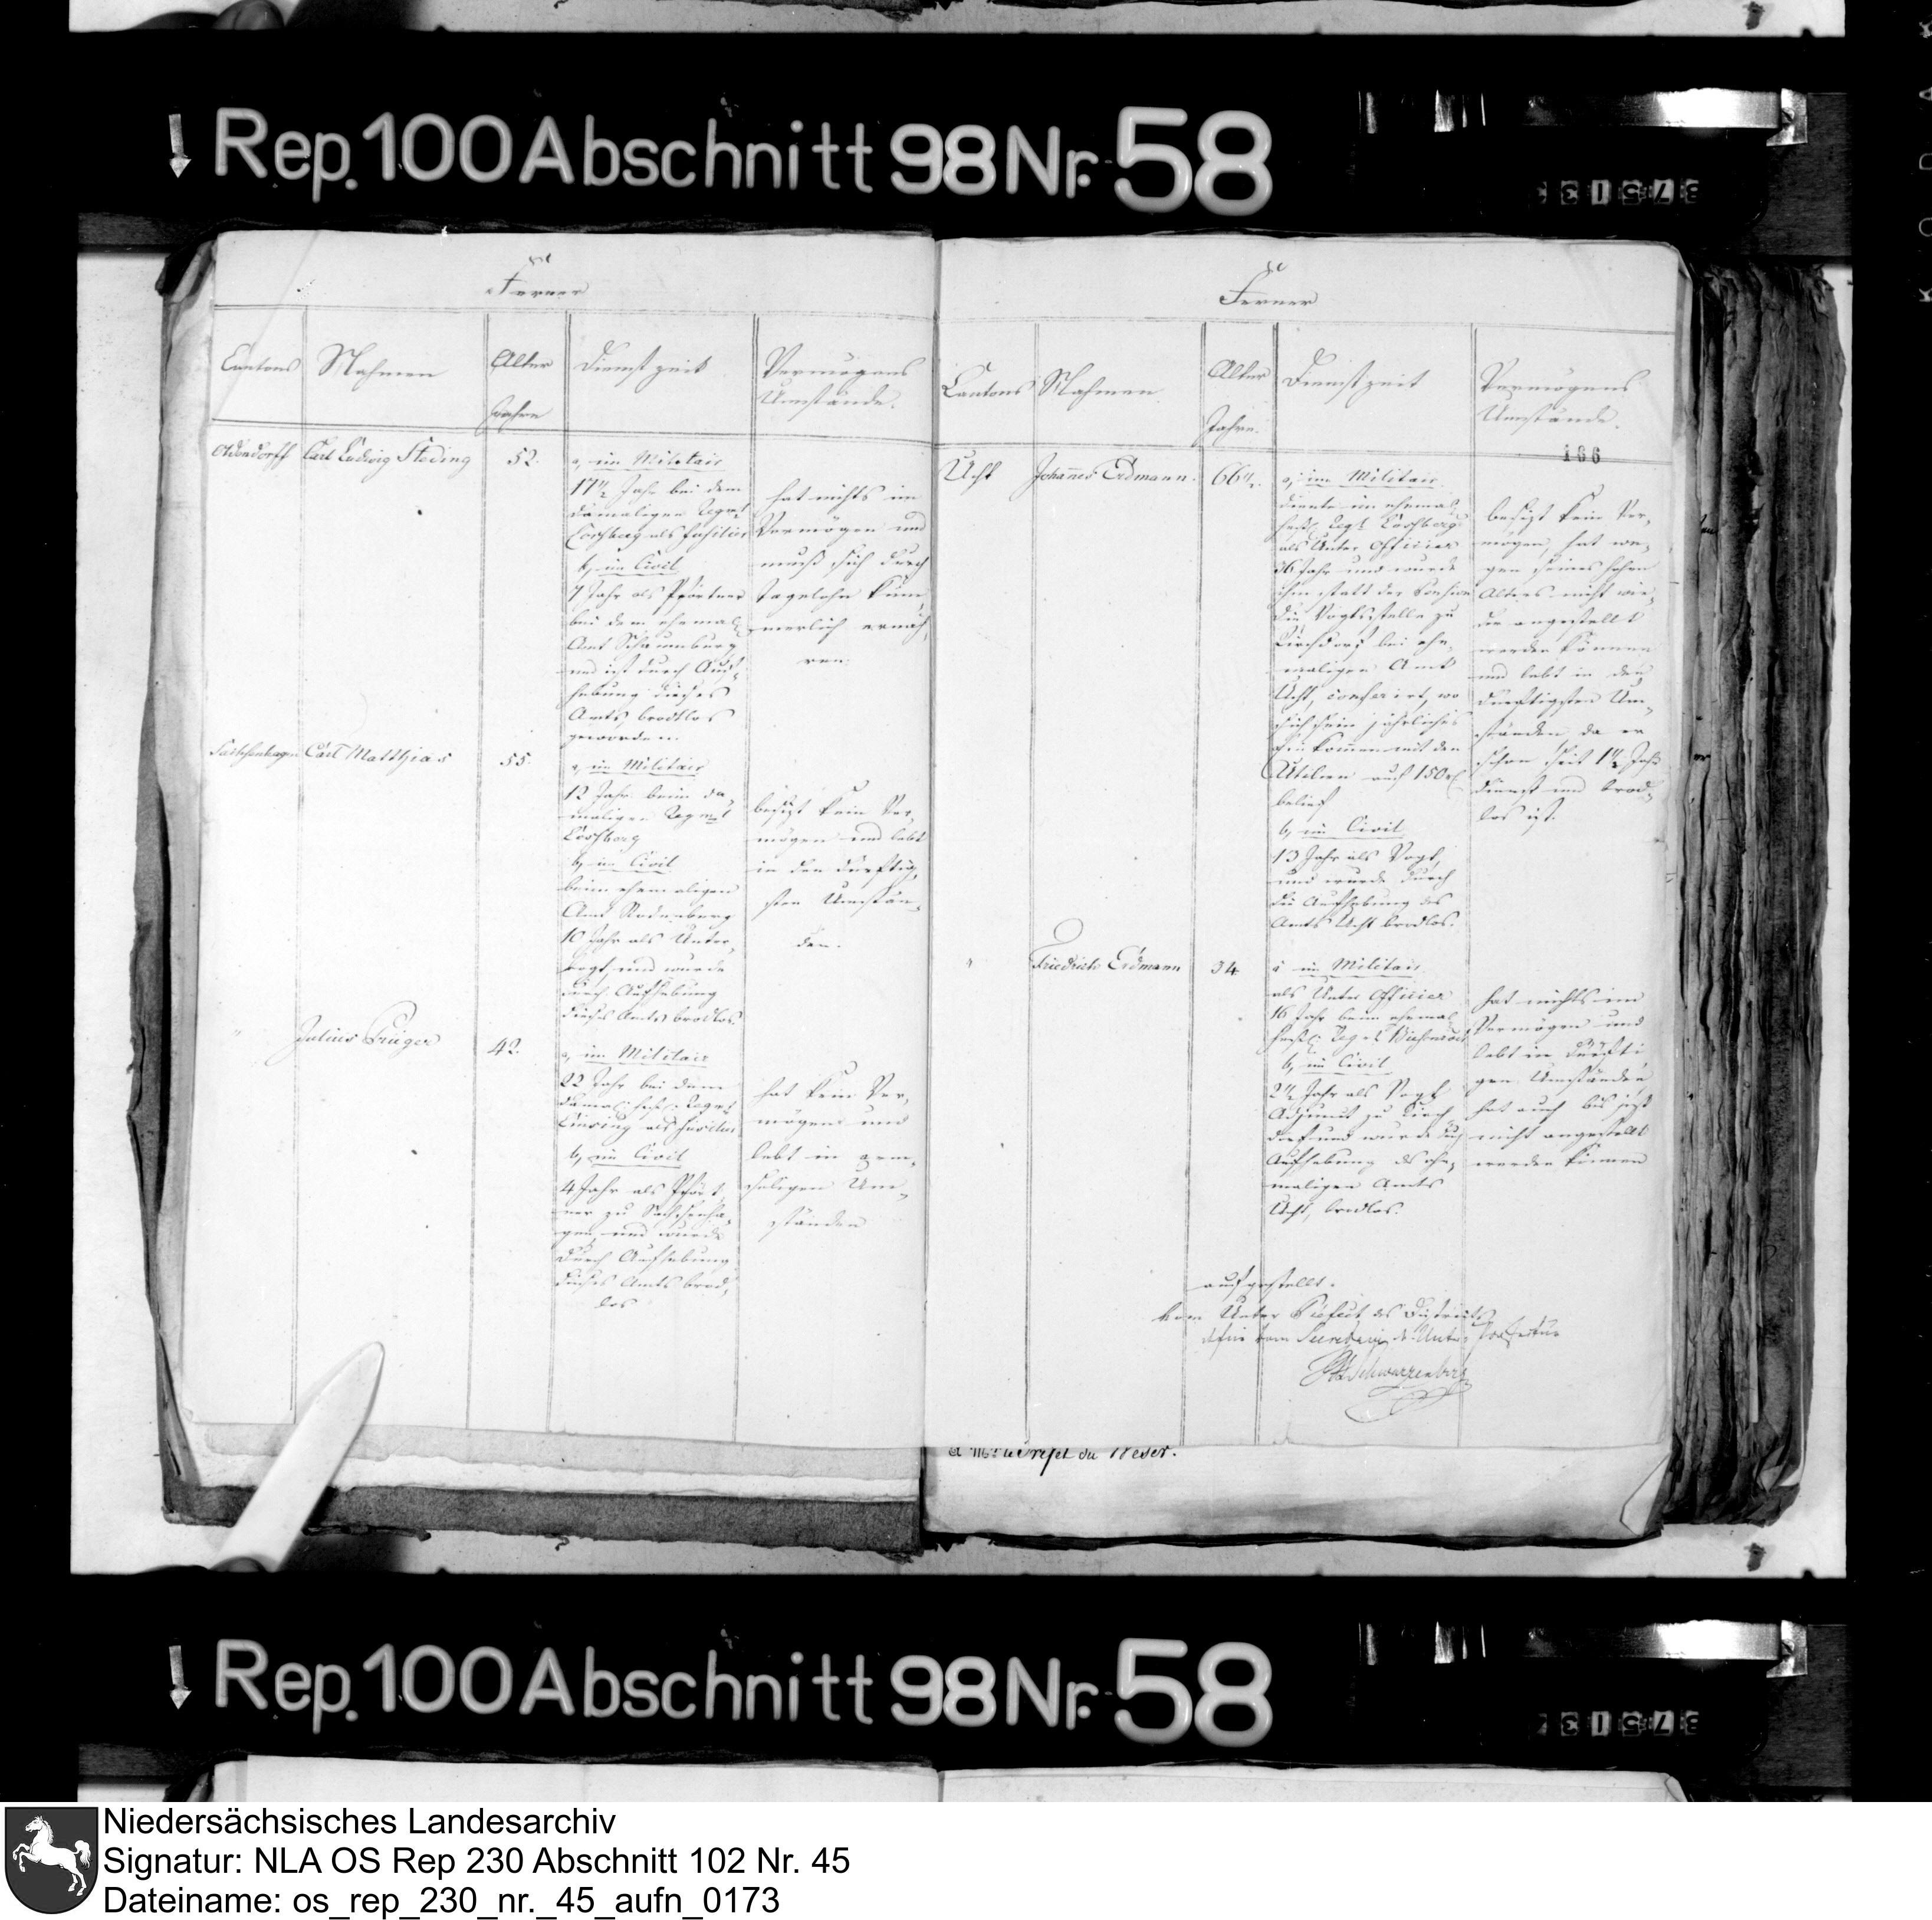 Rep. 100 Abschnitt 98 Nr. 58
Ferner
Cantons Nahmen Alter Jahre Dienstzeit Vermögens Umstände.
Oldendorff Carl Ludwig Steding 52.
a, im Militair
17 1/2 Jahr bei dem
damaligen Regmt
Losberg als Fusilier
b, im Civil
7 Jahr als Pförtner
bei dem ehemal.
Amt Schaumburg
und ist durch Auf-
hebung dieses
Amts brodtlos
geworden.
hat nichts im
Vermögen und
muß sich durch
Tagelohn küm-
merlich ernäh-
ren.
Sachsenhagen Carl Matthias 55.
a, im Militair
12 Jahr beim da-
maligen Regmt
Losberg
b, im Civil
beim ehemaligen
Amt Rodenberg
10 Jahr als Unter-
vogt, und wurde
durch Aufhebung
dieses Amts brodlos.
besizt kein Ver-
mögen und lebt
in den dürftig-
sten Umstän-
den.
" Julius Krüger 42.
a, im Militair
22 Jahr bei dem
damal: heß: Regmt
b, im Civil
4 Jahr als Pfört-
ner zu Sachsenha-
gen und wurde
durch Aufhebung
dieses Amts brod-
los
hat kein Ver-
mögen und
lebt in arm-
seligen Um-
ständen
Ferner
Cantons Nahmen. Alter Jahre. Dienstzeit Vermögens Umstände.
166
Ucht Johannes Erdmann. 66 1/2.
a, im Militair.
diente im ehemal.
heß. Regt Losberg
als Unter Officier
36 Jahr und wurde
ihm statt der Pension
die Vogtsstelle zu
Kirchdorf bei ehe-
maligen Amt
Ucht, conferirt, wo
sich sein jährliches
Einkommen mit den
Utilien auf 150
belief
b, im Civil
13 Jahr als Vogt,
und wurde durch
die Aufhebung des
Amts Ucht brodlos.
besizt kein Ver-
mögen, hat we-
gen seines hohen
Alters nicht wie-
der angestellt
werden können
und lebt in den
dürftigsten Um-
ständen, da er
schon seit 1 1/2 Jahr
dienst und brod-
los ist.
" Friedrich Erdmann 34.
a im Militair
als Unter Officier
16 Jahr beim ehemal
heßl: Regmt
b, im Civil
2 1/2 Jahr als Vogt
Adjunct zu Kirch
dorf und wurde durch
Aufhebung des ehe-
maligen Amts
Ucht, brodlos.
hat nichts im
Vermögen und
lebt in dürfti
gen Umständen
hat auch bis jezt
nicht angestellt
werden können
aufgestellt.
vom Unter Präfect des Districts
Secretair d. Unter Praefectur
Schwarzenberg
du Weser.
Rep. 100 Abschnitt 98 Nr. 58
Niedersächsisches Landesarchiv
Signatur: NLA OS Rep 230 Abschnitt 102 Nr. 45
Dateiname: os_rep_230_nr._45_aufn_0173